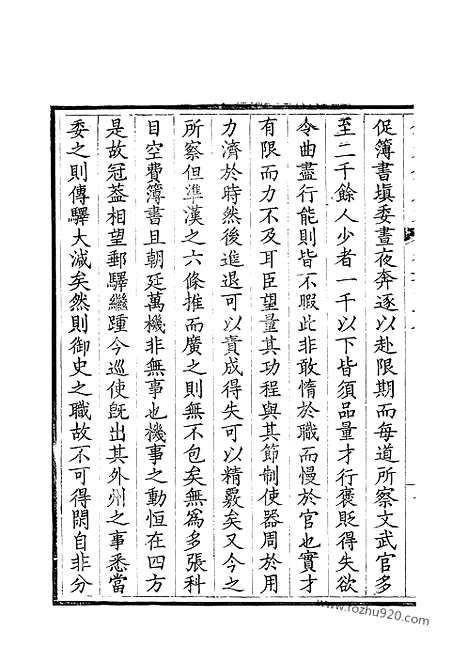 促簿書塡委晝夜奔逐以赴限期而每道所察文武官多
至二千餘人少者一千以下皆須品量才行褒貶得失欲
令曲盡行能則皆不暇此非敢惰於職而慢於官也實才
有限而力不及耳臣望量其功程與其節制使器周於用
力濟於時然後進退可以責成得失可以精覈矣又今之
所察但準漢之六條推而廣之則無不包矣無爲多張科
目空費簿書且朝廷萬機非無事也機事之動恒在四方
是故冠葢相望郵驛繼踵今巡使旣出其外州之事悉當
委之則傳驛大減矣然則御史之職故不可得閑自非分
www.fozhu920.com